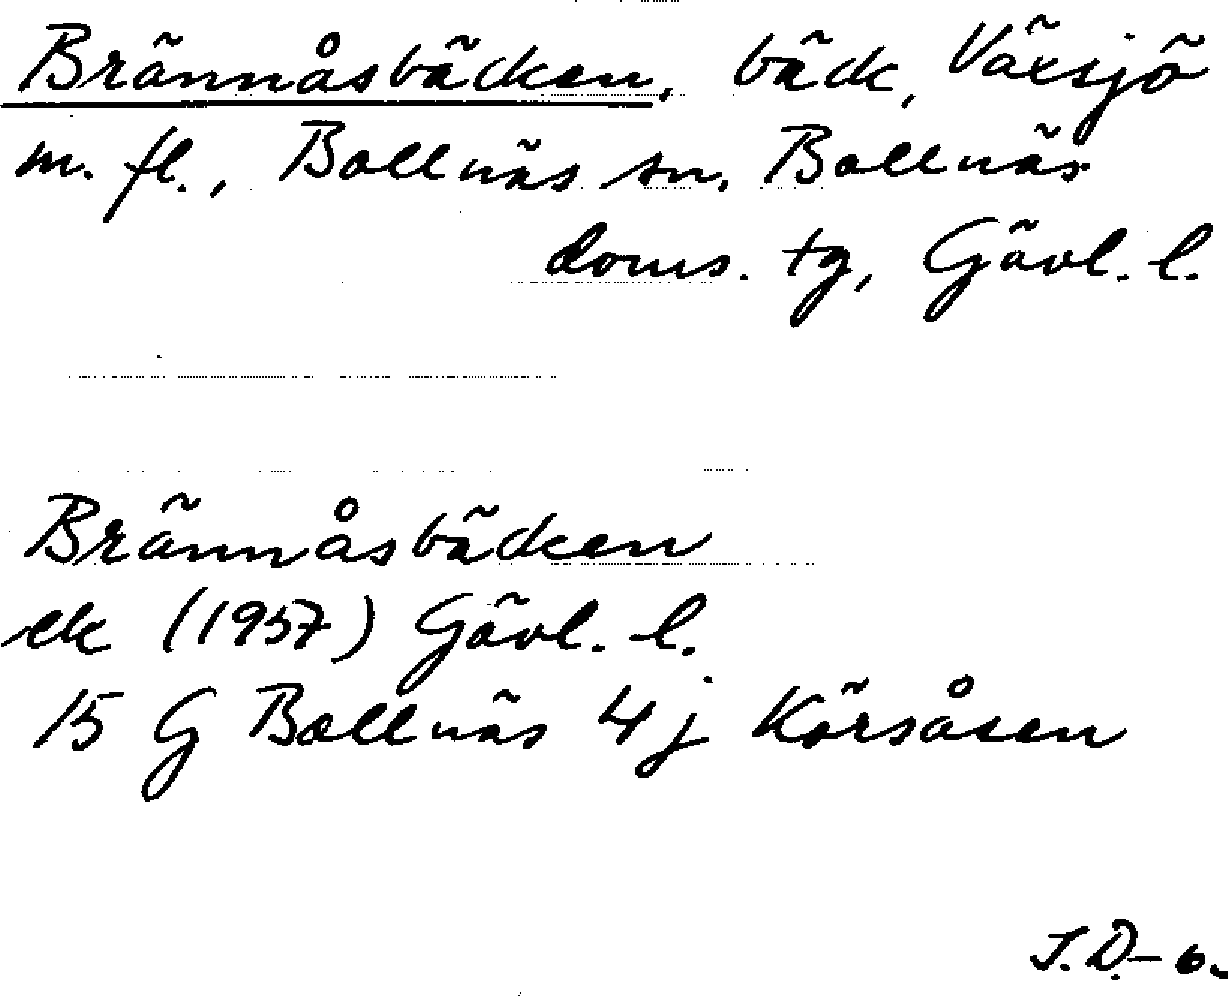 Brännåsbäcken, bäck, Växsjö
m. fl., Bollnäs sn. Bollnäs
doms. tg, Gävl. l.
Brännåsbäcken
ek (1957) Gävl. l.
15 G Bollnäs 4 j Körsåsen
J.D-o.